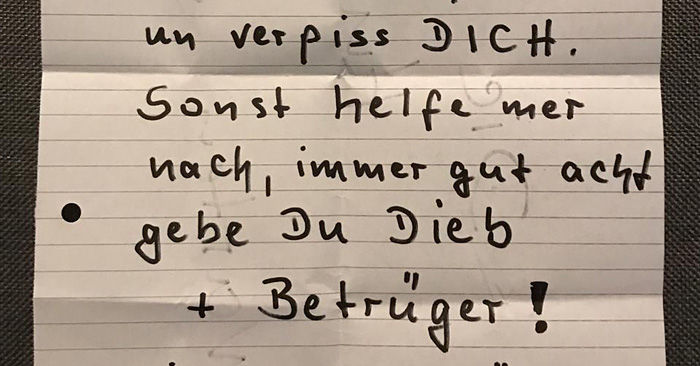 un verpiss DICH.
Sonst helfe mer
nach, immer gut acht
gebe Du Dieb
+ Betrüger!